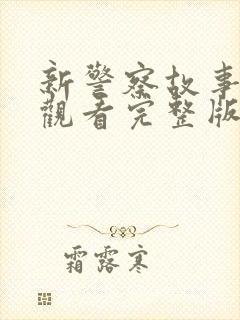 新警察故事
觀看完整版
霜露寒